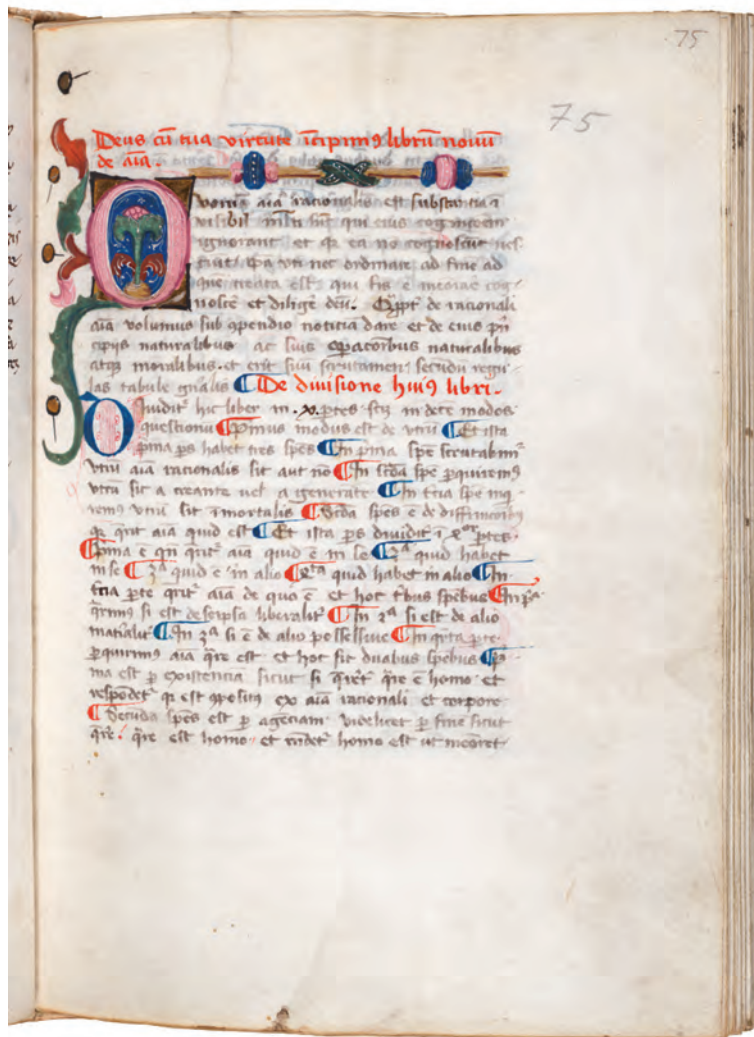 75
75
Deus cū tua virtute īcipimꝰ librū nouū
de aīa.
Quoniā aīa racionalis est substancia ī
uisibil' mlti sūt qui eius cognicionē
ignorant et qꝛ eā nō cognoscūt nes
ciūt ip̄a vti nec ordinare ad finē ad
quē creata est qui fīs ē meīorāē cog
noscē et diligē deū. de racionali
aīa volumus sub ꝯpendio noticiā dare et de eius pn̄
cipijs naturalibus ac suis oꝑacōibus naturalibus
atqꝫ moralibus. et erit sui scrutamen secūdū regu
las tabule gn̄alis ¶ De diuisione huiꝰ libri.
Diuidit' hic liber in .x. ꝑtes scꝫ in decē modos
questionū ¶ Pͥmus modus est de vtrū ¶ Et ista
pͥma ꝑs habet tres spēs ¶ In pͥma spē scrutabim'
vtrū aīa racionalis sit aut nō ¶ In scd̄a spē ꝑquiremꝰ
vtrū sit a creante uel a generāte ¶ In t'cia spē inq̄
remꝰ vtrū sit īmortalis ¶ Scd̄a spēs ē de diffinicōibꝰ
qꝛ q̄rit aīa quid est ¶ Et ista ꝑs diuidit' ī 4ᵒʳ ꝑtes
¶ Pͥma ē qn̄ q̄rit' aīa quid ē in se ¶ 2ᵃ quid habet
in se ¶ 3ᵃ quid ē in alio ¶ 4ᵗᵃ quid habet in alio ¶ In
t'cia ꝑte q̄rit' aīa de quo ē et hoc t'bus spēbus ¶ In pͥᵃ
q̄rimꝰ si est de seipsa liberalit' ¶ In 2ᵃ si est de alio
mat'ialit' ¶ In 3ᵃ si ē de alio possessiue ¶ In q̄rta ꝑte
ꝑquirimꝰ aīa q̄re est et hoc sit duabus spēbus ¶ Pͥ
ma est ꝑ existencia sicut si q̄ret' q̄re ē homo et
respondet' qꝛ est ꝯposit' ex aīa racionali et corpore
¶ Secūda spēs est ꝑ agēciam videlicet ꝑ finē sicut
q̄re. q̄re est homo et rn̄det' homo est ut meōret